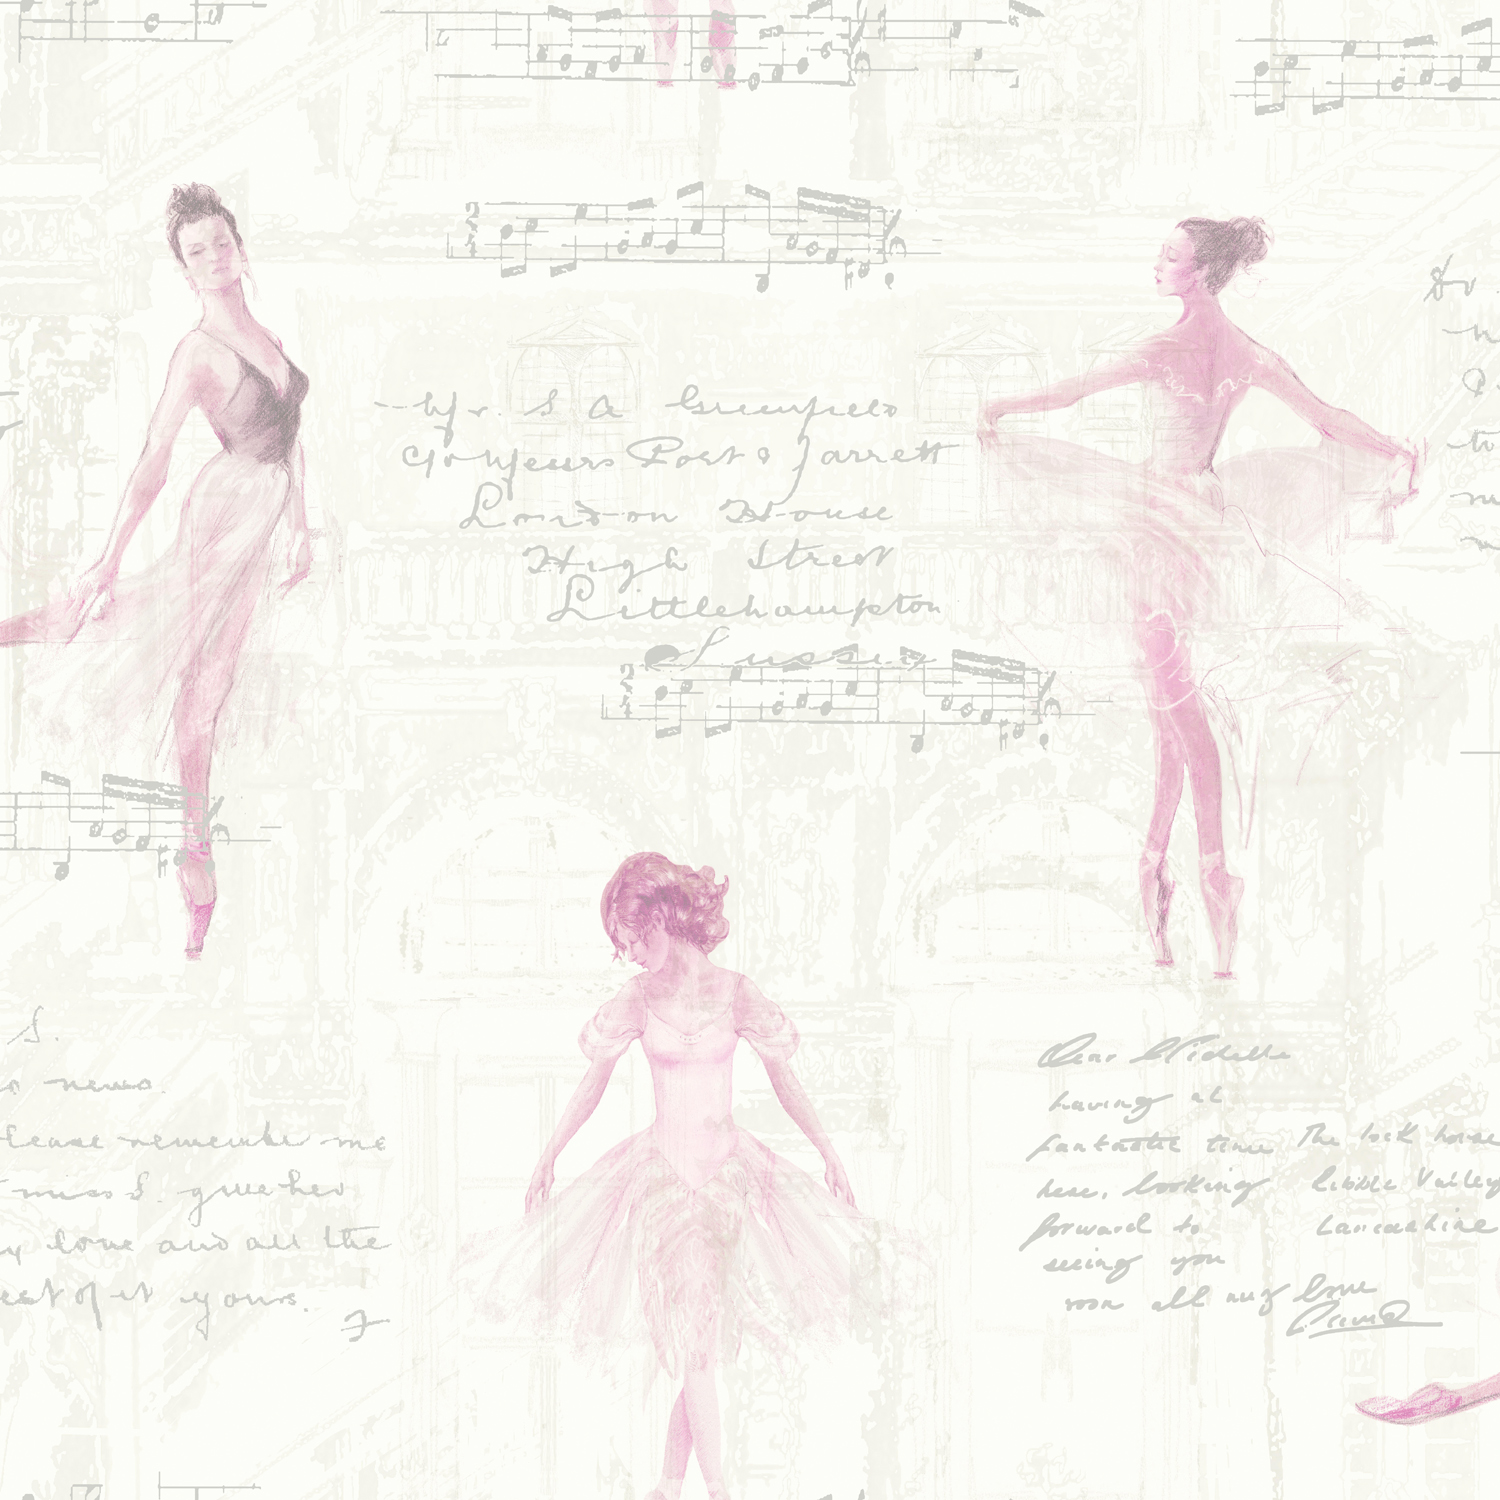 Mr. S A Greenfield
Messrs Post & Jarrett
London House
High Street
Littlehampton
Sussex
Dr
S.
news.
lease remember me
miss S. give her
love and all the
est of it yours.
Dear Michelle
having at
fantastic time
here, looking
forward to
seeing you
soon all my love
The lock house
Ribble Valley
Lancashire